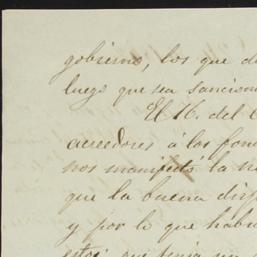 gobierno, los que d
luego que sea sancion
El 16. del
acreedores á los fon
nos manifestó la n
que la buena disp
y por lo que habi